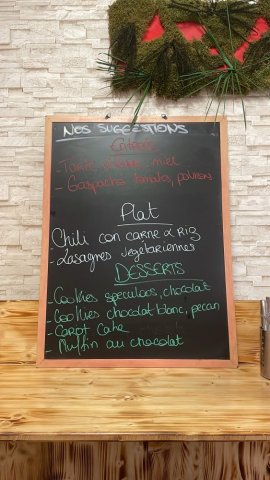 Nos SUGGESTIONS
Entrées
- Tarte, chèvre, miel
- Gaspacho tomates, poivrons
Plat
Chili con carne & RIZ
- Lasagnes végétariennes
DESSERTS
- Cookies speculoos, chocolat
- Cookies chocolat blanc, pecan
- Carot Cake
- Muffin au chocolat